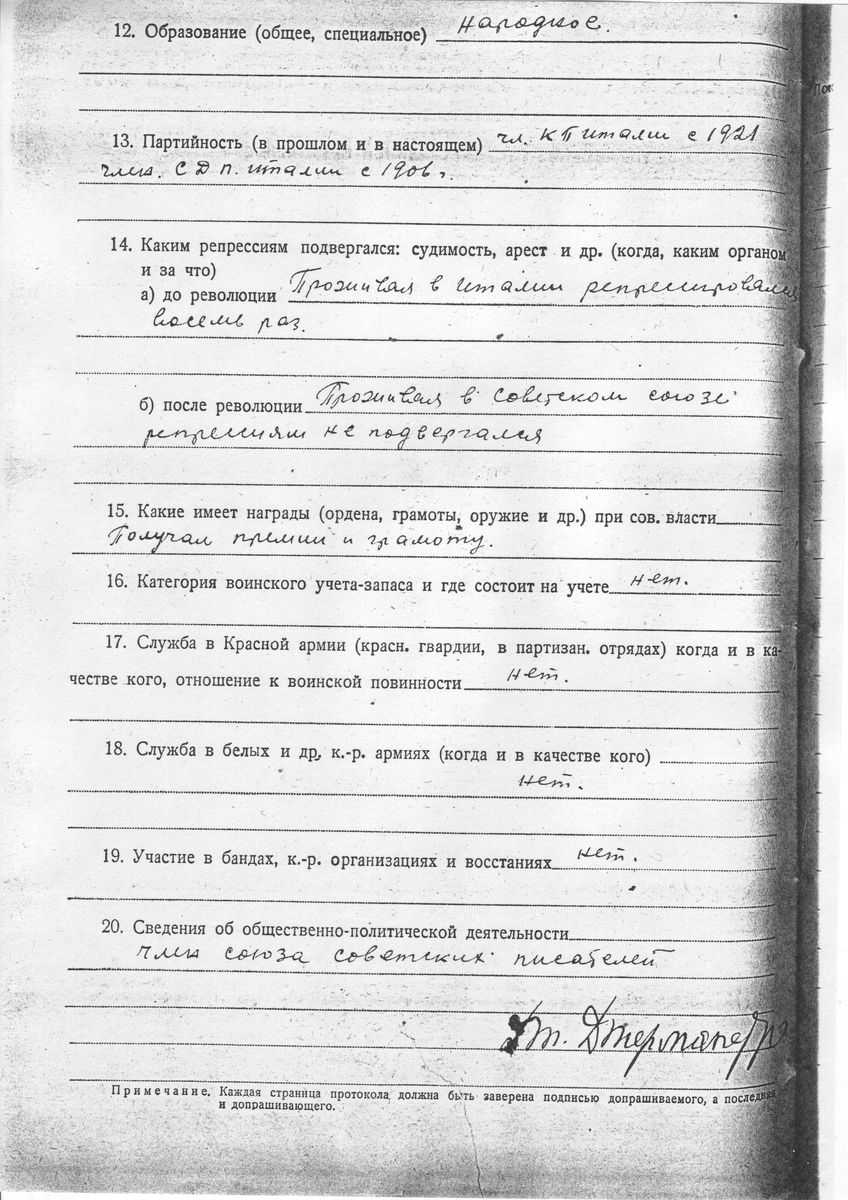 12. Образование (общее, специальное) народное.
13. Партийность (в прошлом и в настоящем) чл. КП италии с 1921
член. С Д п. италии с 1906 г.
14. Каким репрессиям подвергался: судимость, арест и др. (когда, каким органом
и за что)
а) до революции Проживая в италии репрессировался
восемь раз.
б) после революции Проживая в советском союзе
репрессиям не подвергался
15. Какие имеет награды (ордена, грамоты, оружие и др.) при сов. власти
Получал премии и грамоту.
16. Категория воинского учета-запаса и где состоит на учете нет.
17. Служба в Красной армии (красн. гвардии, в партизан. отрядах) когда и в ка-
честве кого, отношение к воинской повинности нет.
18. Служба в белых и др. к.-р. армиях (когда и в качестве кого)
нет.
19. Участие в бандах, к.-р. организациях и восстаниях нет.
20. Сведения об общественно-политической деятельности
член союза советских писателей
Примечание. Каждая страница протокола должна быть заверена подписью допрашиваемого, а последняя
и допрашивающего.